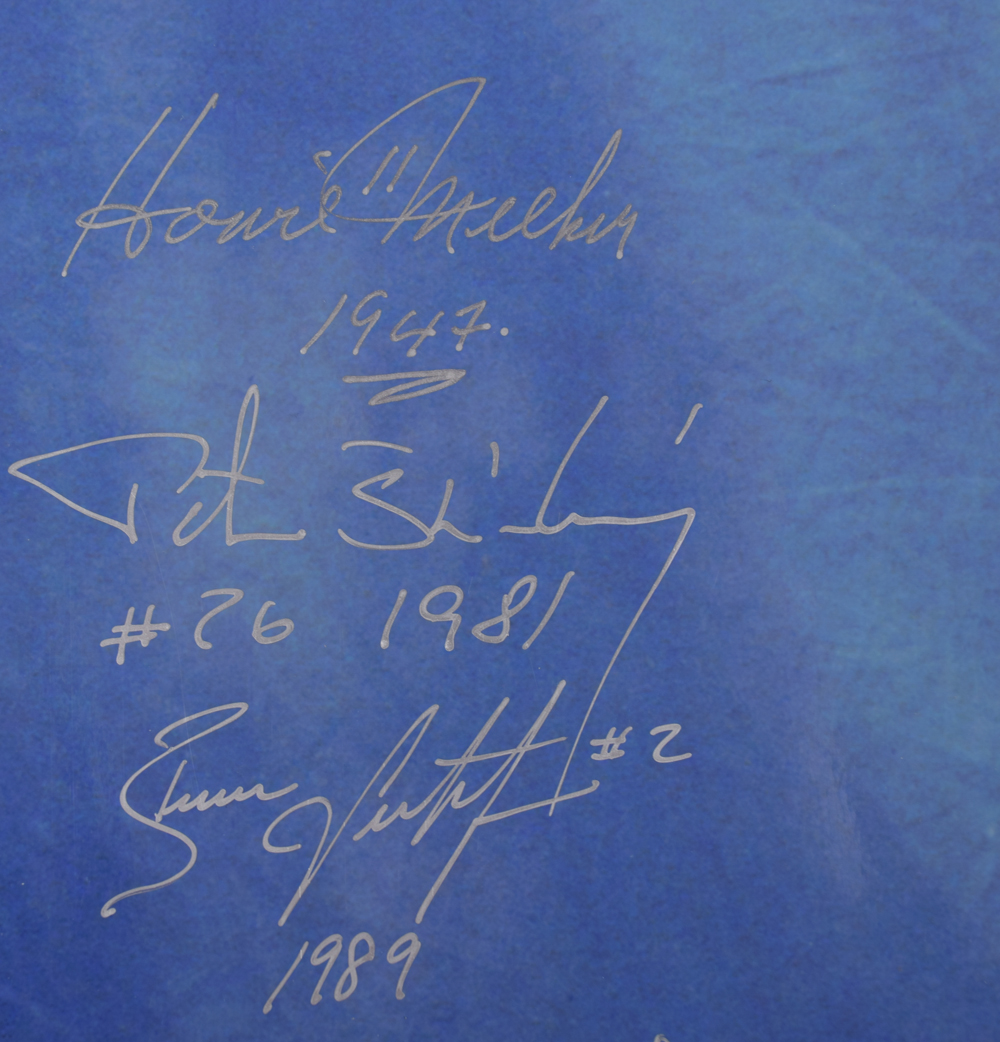 Howie Meeker
1947.
Peter Stastny
#26 1981
Brian Leetch #2
1989